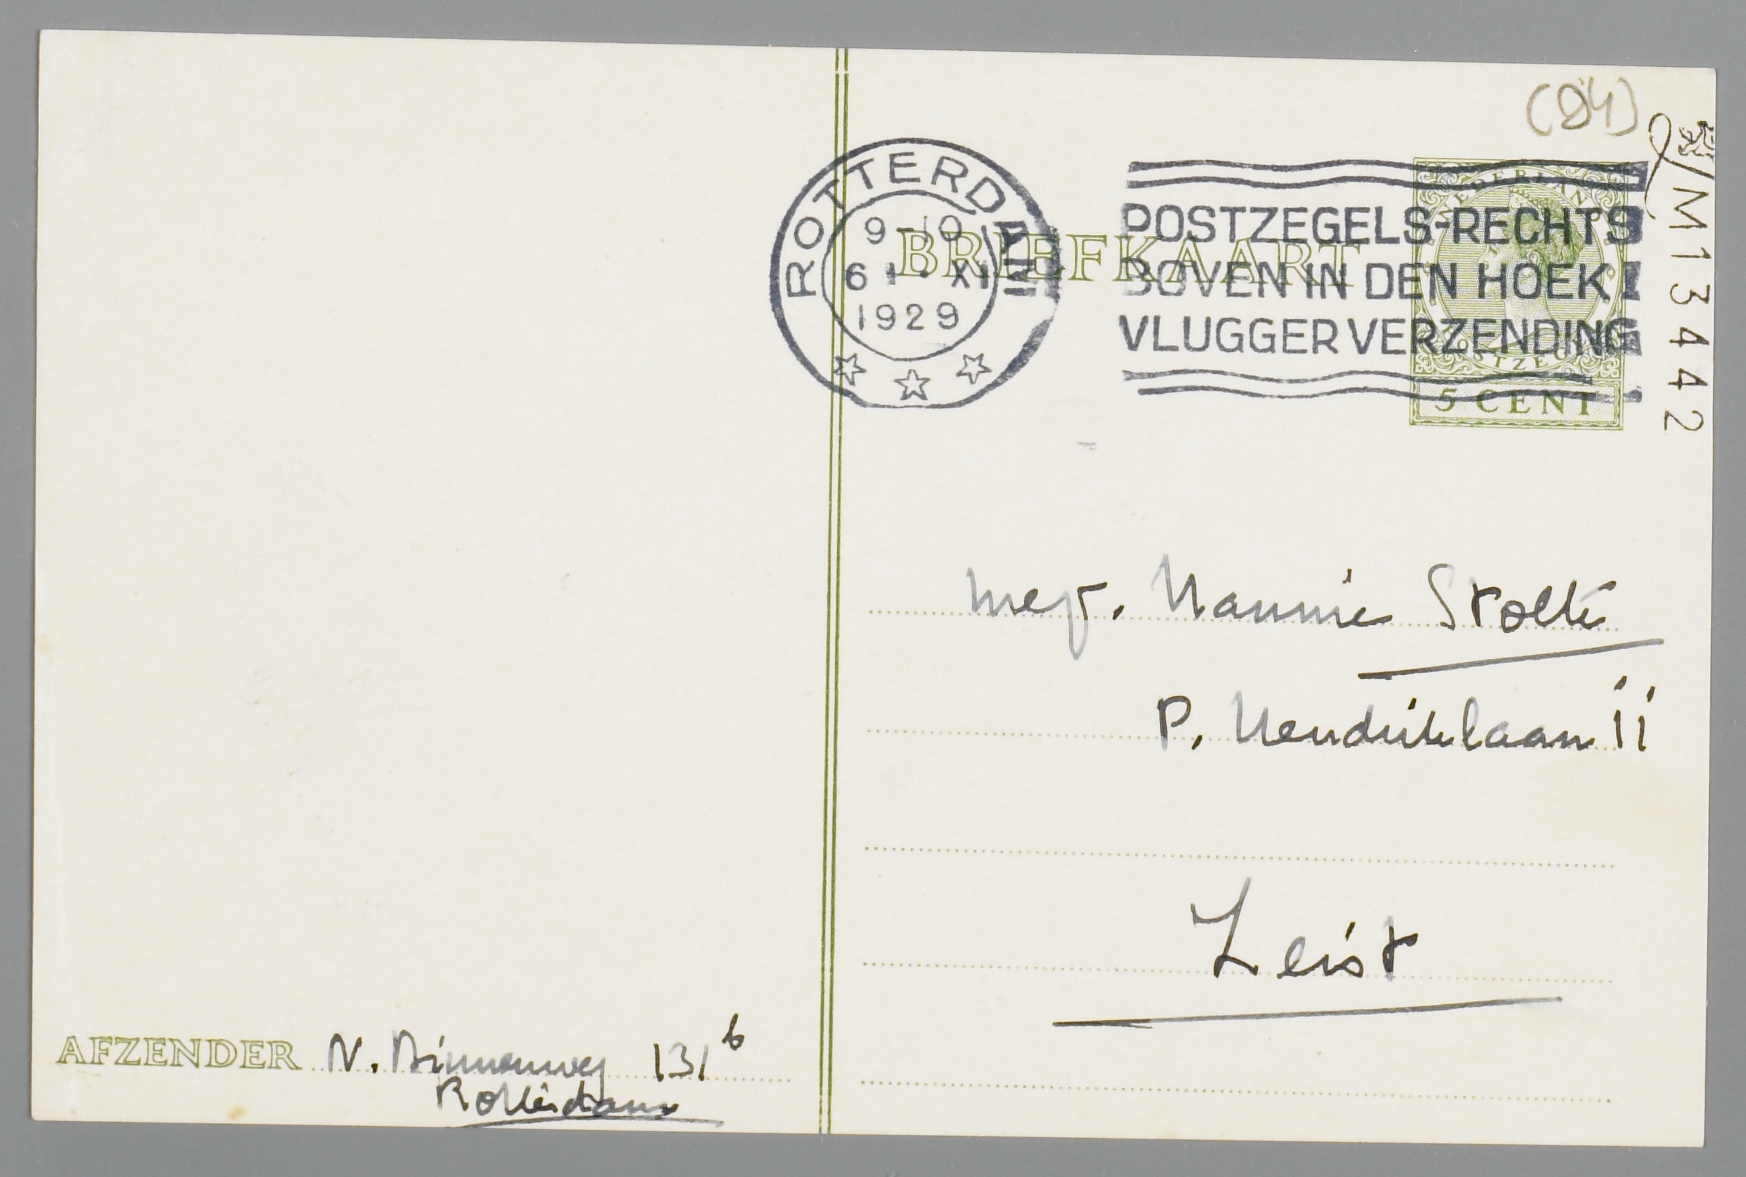 (84)
M13442
ROTTERDAM
9-10
6 1 · XI
1929
POSTZEGELS-RECHTS
BOVEN IN DEN HOEK!
VLUGGER VERZENDING
BRIEFKAART
NEDERLAND
POSTZEGEL
5 CENT
Mej. Nannie Stolte
P. Hendriklaan 11
Zeist
AFZENDER N. Binnenweg 131 b
Rotterdam